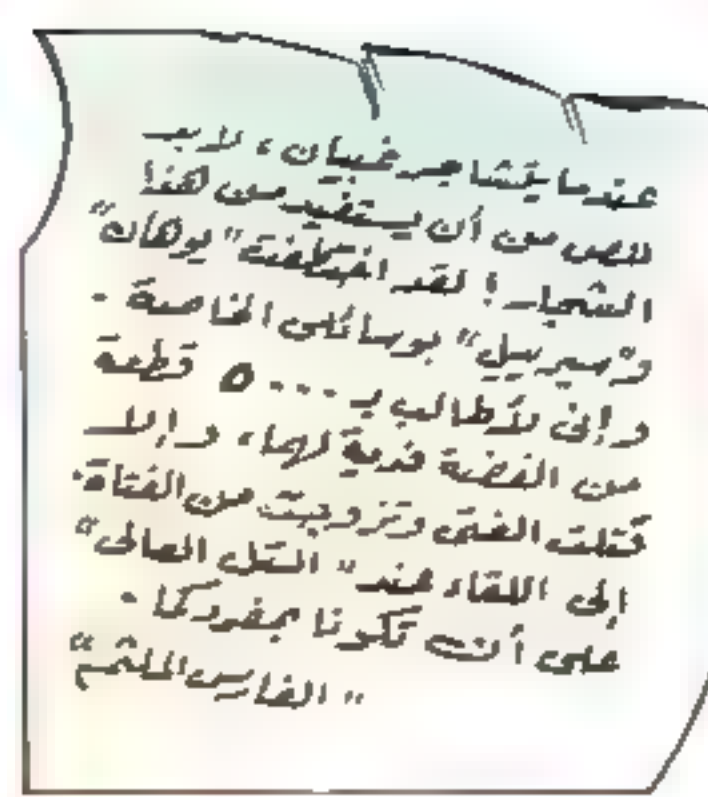 عندما يتشاجر غبيان، لابد
للص من أن يستفيد من هذا
الشجار! لقد اختطفت "يوهان"
و"سيربيل" بوسائلى الخاصة.
وإنى لأطالب بـ ٥٠٠٠ قطعة
من الفضة فدية لهما، وإلا
قتلت الفتى وتزوجت من الفتاة.
إلى اللقاء عند "التل العالى"
على أن تكونا بمفردكما.
"الفارس الملثم"